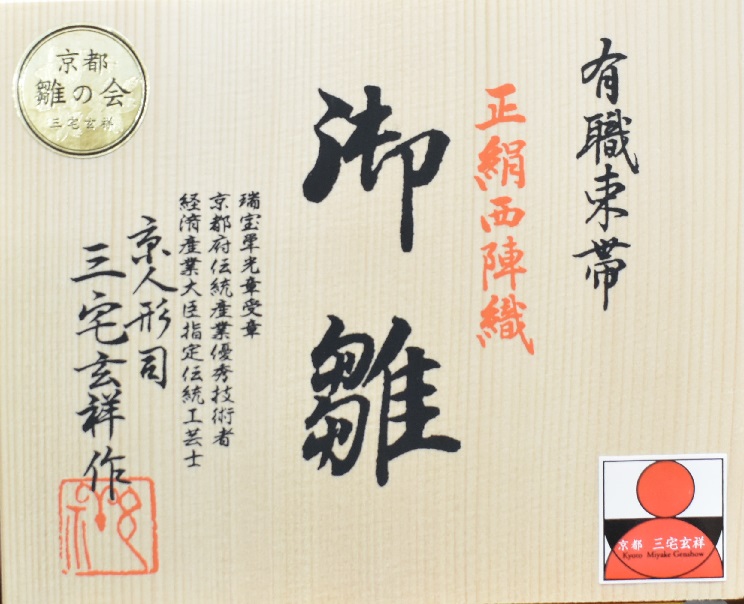 有職束帯
正絹西陣織
御雛
瑞宝単光章受章
京都府伝統産業優秀技術者
経済産業大臣指定伝統工芸士
京人形司
三宅玄祥作
京都
雛の会
三宅玄祥
京都 三宅玄祥
Kyoto Miyake Genshow